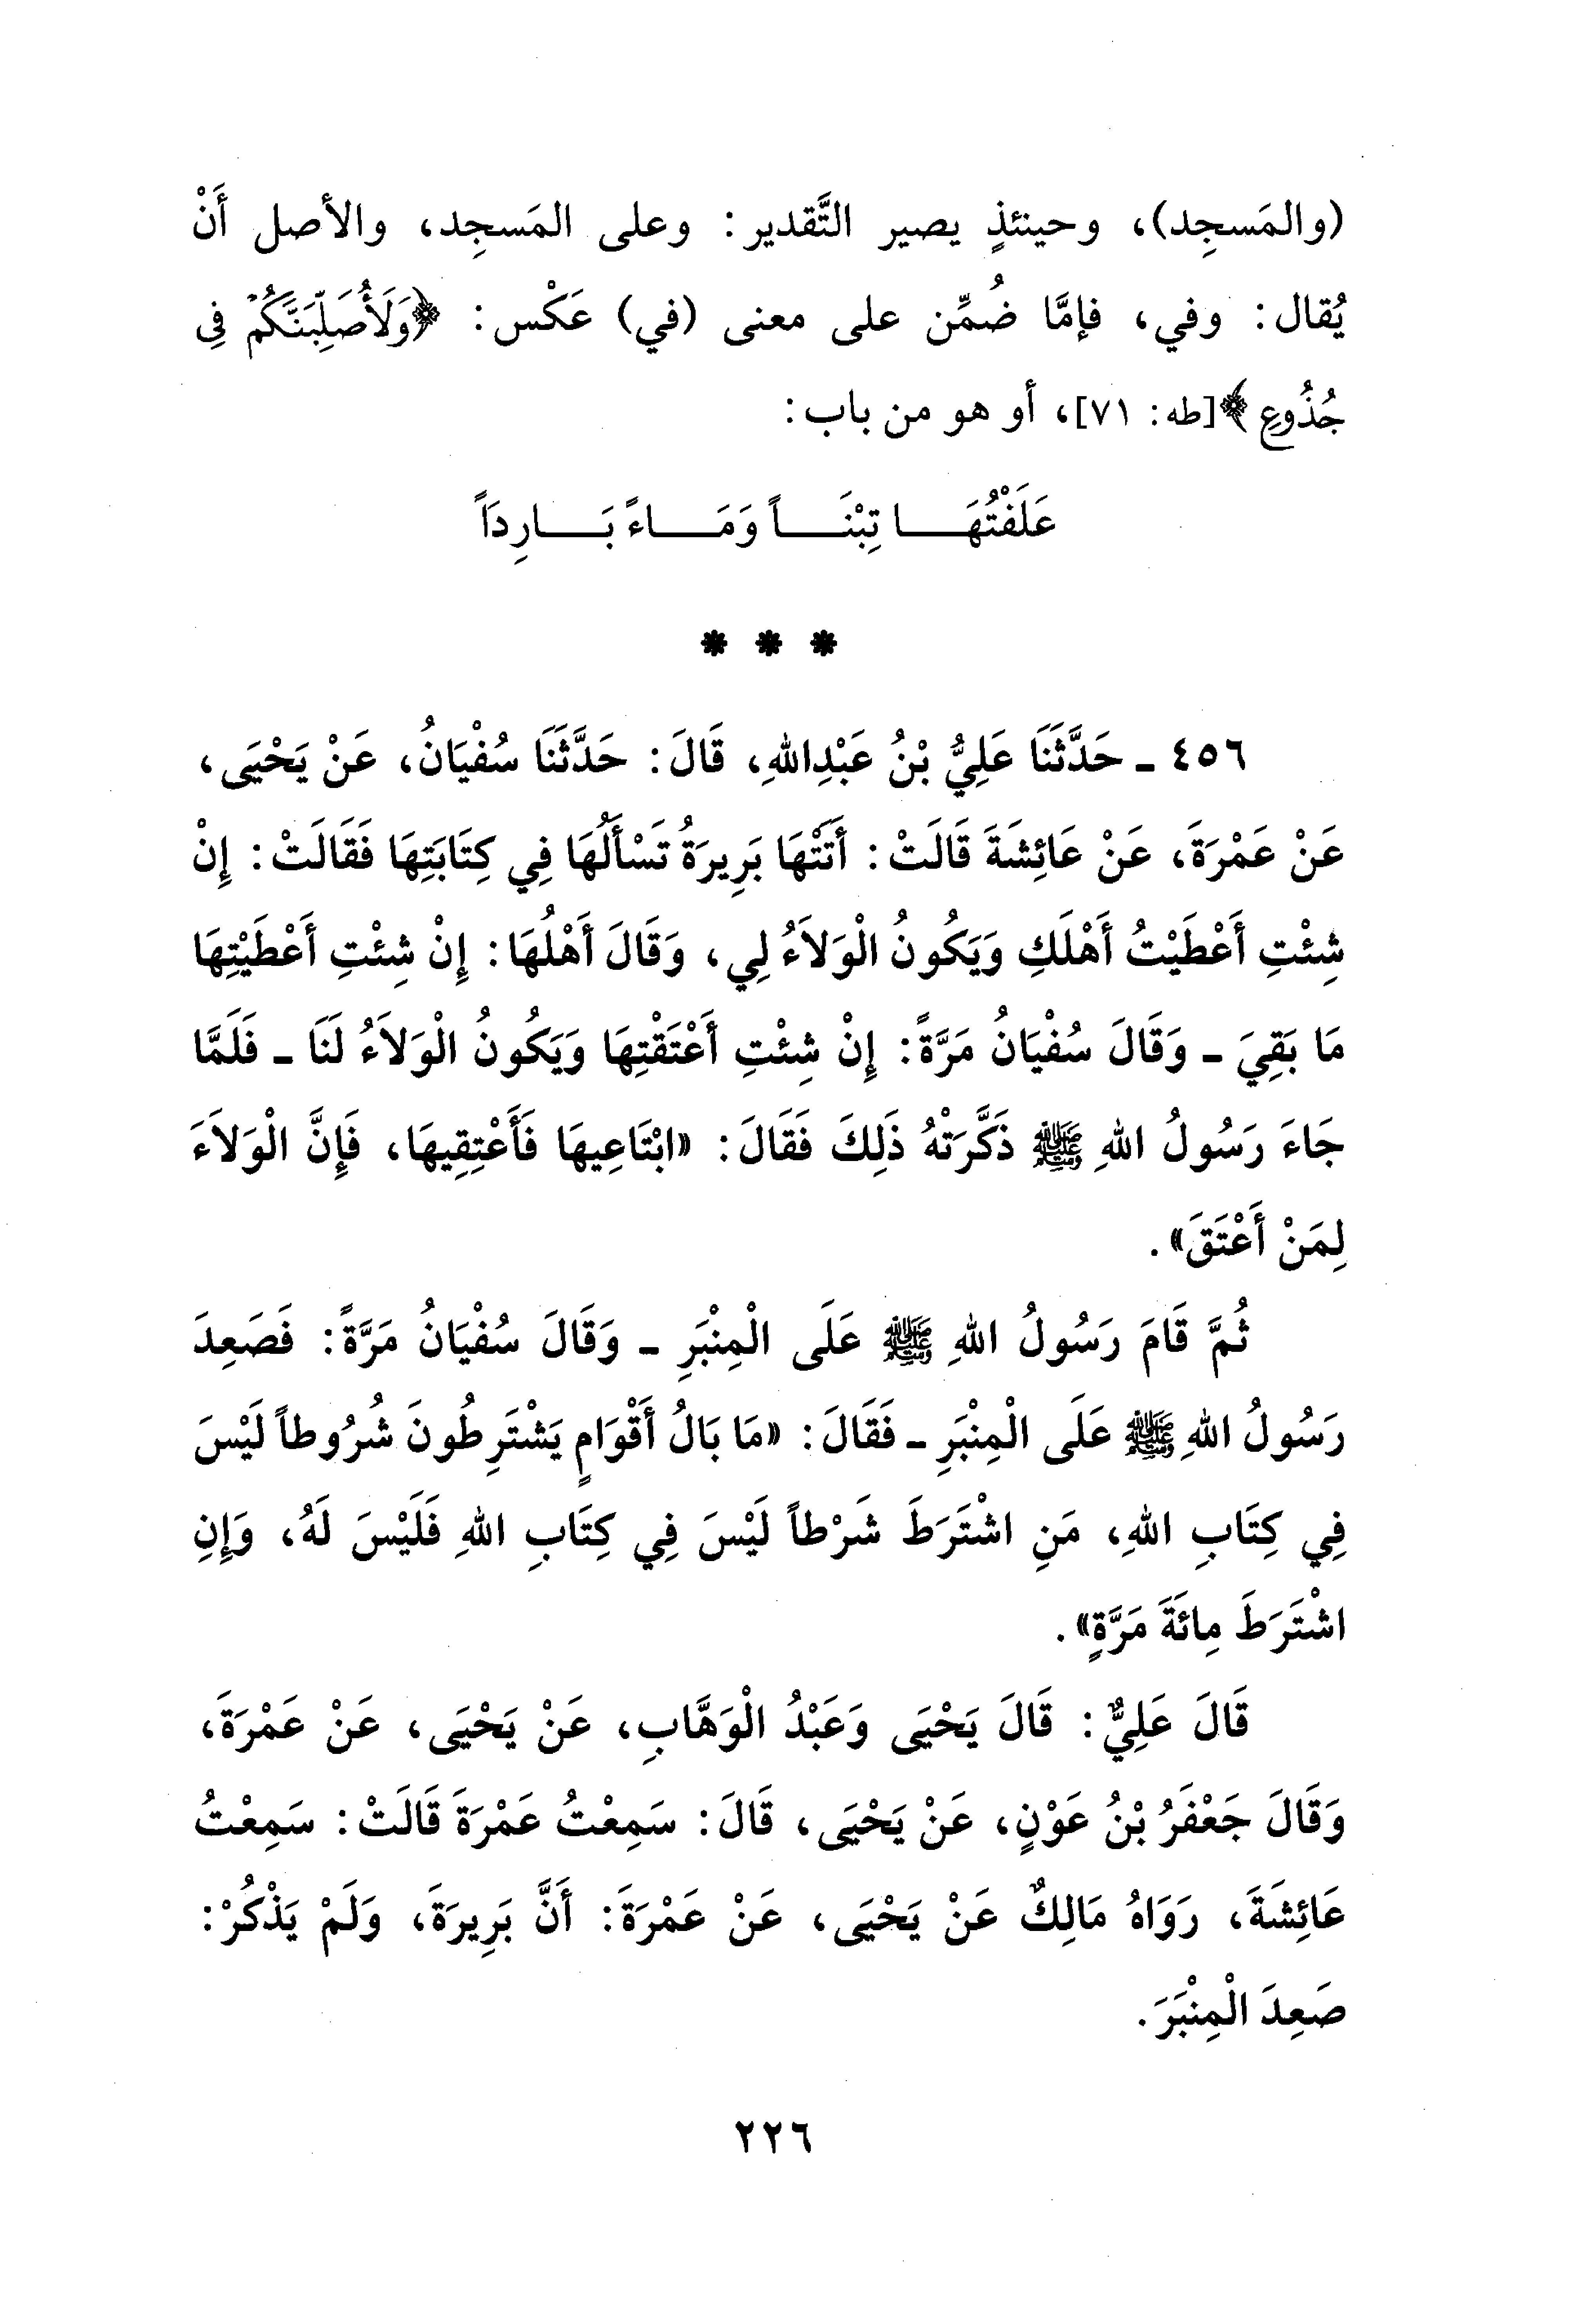 (والمَسجِد)، وحينئذٍ يصير التَّقدير: وعلى المَسجِد، والأصل أَنْ
يُقال: وفي، فإمَّا ضُمِّن على معنى (في) عَكْس: ﴿وَلَأُصَلِّبَنَّكُمْ فِي
جُذُوعِ﴾[طه: ٧١]، أو هو من باب:
عَلَفْتُهَـــا تِبْنَـــاً وَمَـــاءً بَـــارِدَاً
* * *
٤٥٦ ـ حَدَّثَنَا عَلِيُّ بْنُ عَبْدِاللهِ، قَالَ: حَدَّثَنَا سُفْيَانُ، عَنْ يَحْيَى،
عَنْ عَمْرَةَ، عَنْ عَائِشَةَ قَالَتْ: أَتَتْهَا بَرِيرَةُ تَسْأَلُهَا فِي كِتَابَتِهَا فَقَالَتْ: إِنْ
شِئْتِ أَعْطَيْتُ أَهْلَكِ وَيَكُونُ الْوَلَاءُ لِي، وَقَالَ أَهْلُهَا: إِنْ شِئْتِ أَعْطَيْتِهَا
مَا بَقِيَ ـ وَقَالَ سُفْيَانُ مَرَّةً: إِنْ شِئْتِ أَعْتَقْتِهَا وَيَكُونُ الْوَلَاءُ لَنَا ـ فَلَمَّا
جَاءَ رَسُولُ اللهِ ﷺ ذَكَّرَتْهُ ذَلِكَ فَقَالَ: «ابْتَاعِيهَا فَأَعْتِقِيهَا، فَإِنَّ الْوَلَاءَ
لِمَنْ أَعْتَقَ».
ثُمَّ قَامَ رَسُولُ اللهِ ﷺ عَلَى الْمِنْبَرِ ـ وَقَالَ سُفْيَانُ مَرَّةً: فَصَعِدَ
رَسُولُ اللهِ ﷺ عَلَى الْمِنْبَرِ ـ فَقَالَ: «مَا بَالُ أَقْوَامٍ يَشْتَرِطُونَ شُرُوطاً لَيْسَ
فِي كِتَابِ اللهِ، مَنِ اشْتَرَطَ شَرْطاً لَيْسَ فِي كِتَابِ اللهِ فَلَيْسَ لَهُ، وَإِنِ
اشْتَرَطَ مِائَةَ مَرَّةٍ».
قَالَ عَلِيٌّ: قَالَ يَحْيَى وَعَبْدُ الْوَهَّابِ، عَنْ يَحْيَى، عَنْ عَمْرَةَ،
وَقَالَ جَعْفَرُ بْنُ عَوْنٍ، عَنْ يَحْيَى، قَالَ: سَمِعْتُ عَمْرَةَ قَالَتْ: سَمِعْتُ
عَائِشَةَ، رَوَاهُ مَالِكٌ عَنْ يَحْيَى، عَنْ عَمْرَةَ: أَنَّ بَرِيرَةَ، وَلَمْ يَذْكُرْ:
صَعِدَ الْمِنْبَرَ.
٢٢٦